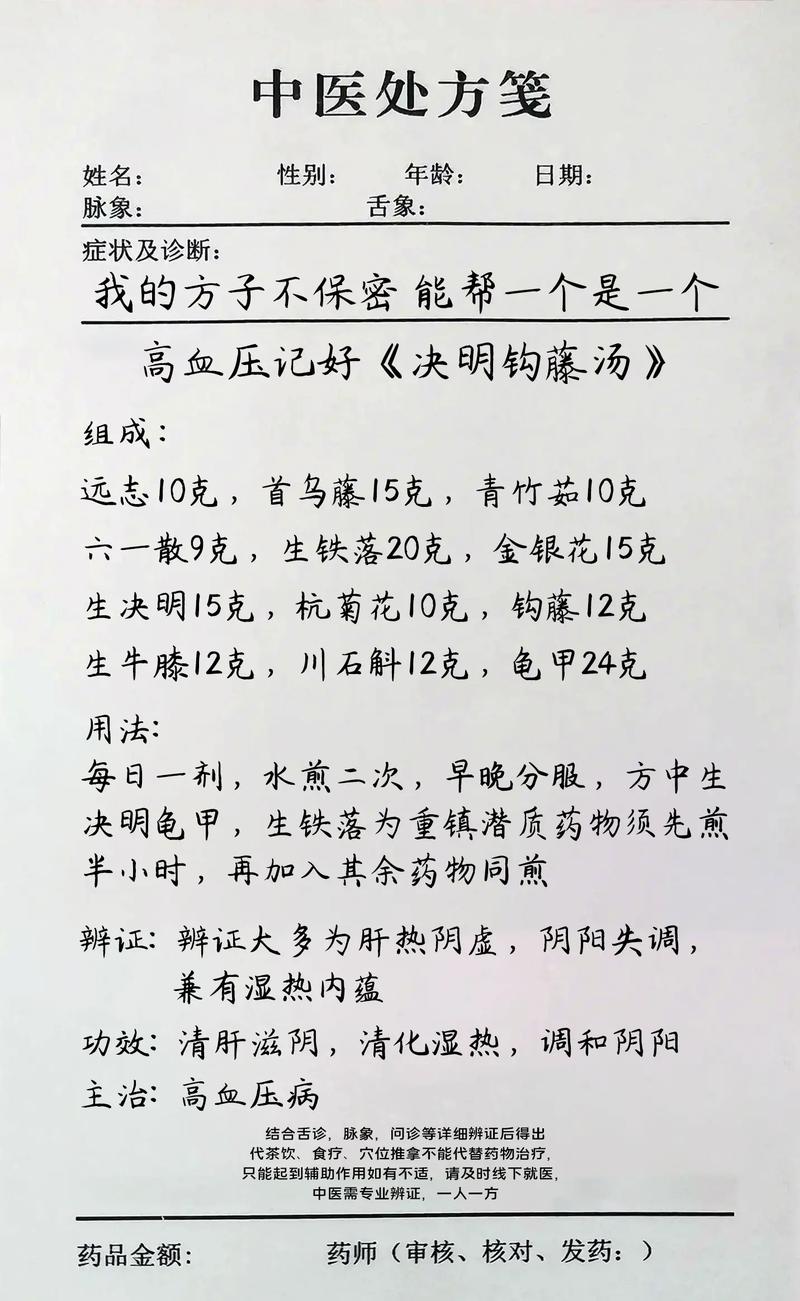 中医处方笺
姓名： 性别： 年龄： 日期：
脉象： 舌象：
症状及诊断：
我的方子不保密 能帮一个是一个
高血压记好《决明钩藤汤》
组成：
远志10克，首乌藤15克，青竹茹10克
六一散9克，生铁落20克，金银花15克
生决明15克，杭菊花10克，钩藤12克
生牛膝12克，川石斛12克，龟甲24克
用法：
每日一剂，水煎二次，早晚分服，方中生
决明龟甲，生铁落为重镇潜质药物须先煎
半小时，再加入其余药物同煎
辨证：辨证大多为肝热阴虚，阴阳失调，
兼有湿热内蕴
功效：清肝滋阴，清化湿热，调和阴阳
主治：高血压病
结合舌诊，脉象，问诊等详细辨证后得出
代茶饮、食疗、穴位推拿不能代替药物治疗，
只能起到辅助作用如有不适，请及时线下就医，
中医需专业辨证，一人一方
药品金额： 药师（审核、核对、发药：）